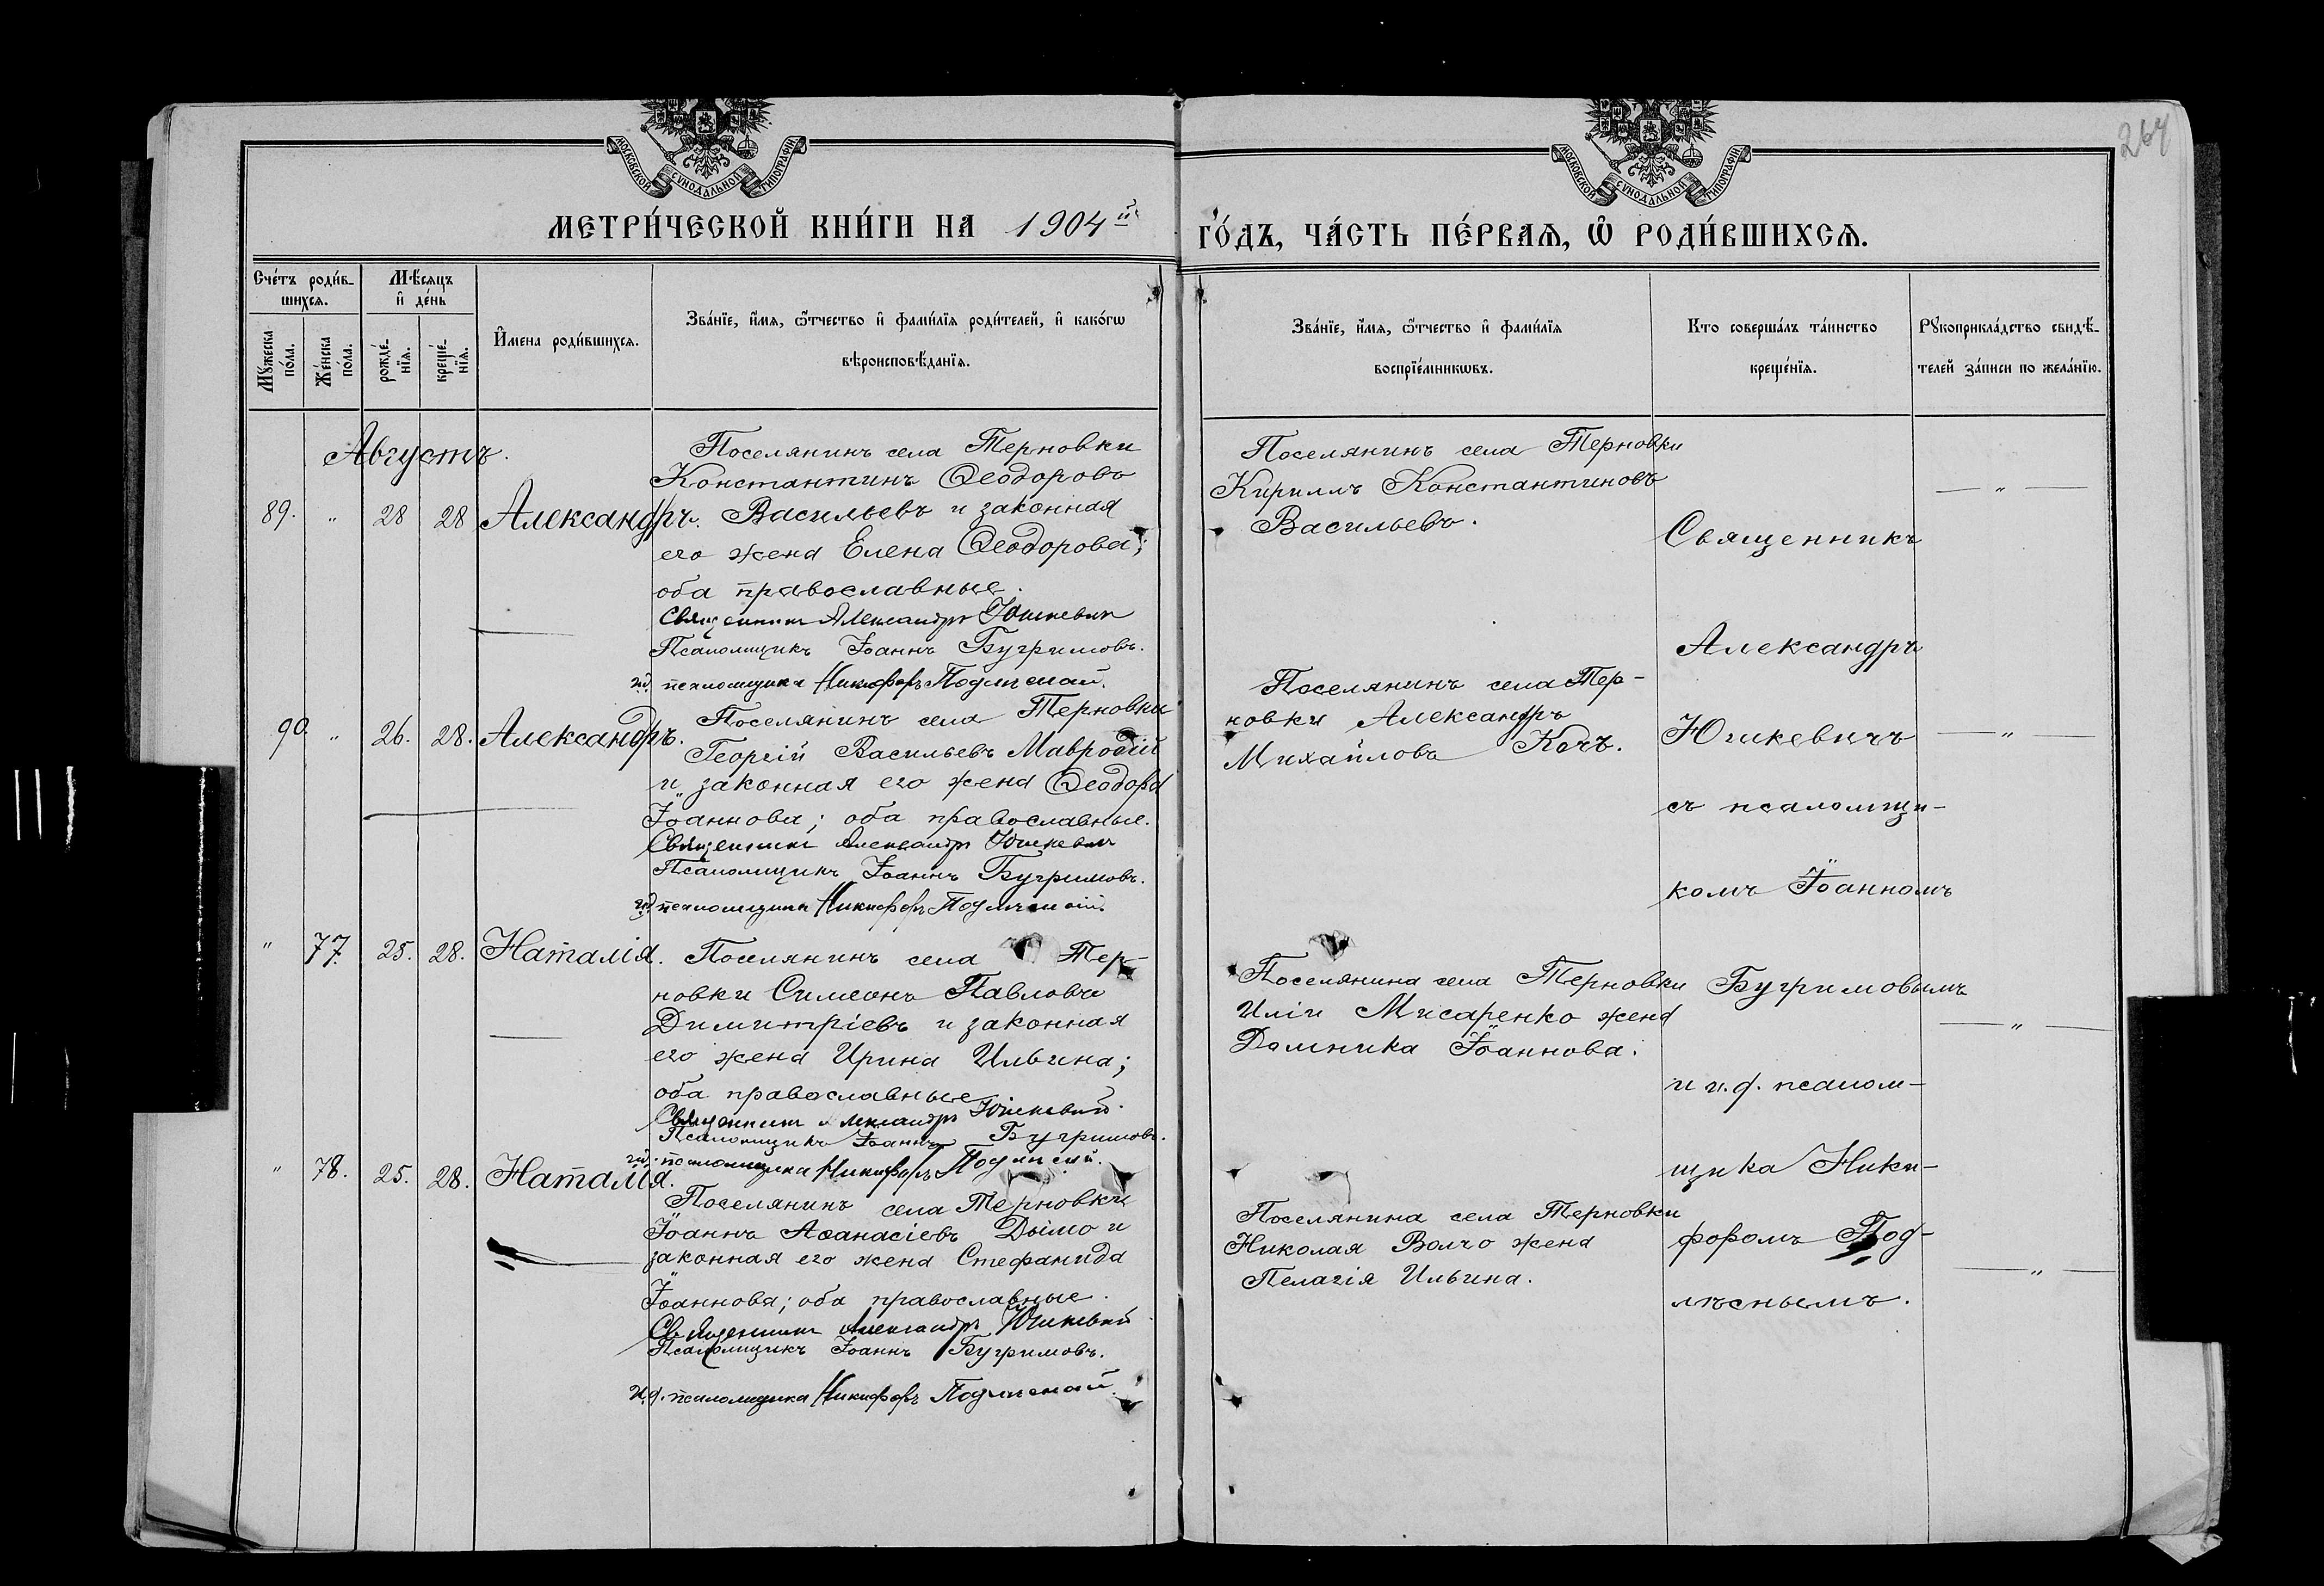 МОСКОВСКОЙ СѴНОДАЛЬНОЙ ТИПОГРАФІИ
МОСКОВСКОЙ СѴНОДАЛЬНОЙ ТИПОГРАФІИ
264
МЕТРИ́ЧЕСКОЙ КНИ́ГИ НА 1904й
ГО́ДЪ, ЧА́СТЬ ПЕ́РВАѦ, Ѡ҆ РОДИ́ВШИХСѦ.
Сче́тъ роди́в-
шихсѧ.
Мꙋ́жеска
по́ла.
Же́нска
по́ла.
Мѣ́сѧцъ
и҆ де́нь
рожде́-
нїѧ.
креще́-
нїѧ.
И҆́мена роди́вшихсѧ.
Зва́нїе, и҆́мѧ, ѻ҆́тчество и҆ фами́лїѧ роди́телей, и҆ како́гѡ
вѣроисповѣ́данїѧ.
Зва́нїе, и҆́мѧ, ѻ҆́тчество и҆ фами́лїѧ
воспрїе́мникѡвъ.
Кто соверша́лъ та́инство
креще́нїѧ.
Рꙋкоприкла́дство свидѣ́-
телей за́писи по жела́нїю.
Августъ.
89. " 28 28 Александръ.
Поселянинъ села Терновки
Константинъ Ѳеодоровъ
Васильевъ и законная
его жена Елена Ѳеодорова;
оба православные.
Священникъ Александръ Юшкевич
Псаломщикъ Іоаннъ Бугримовъ.
и.д. псаломщика Никифоръ Подлѣсный.
Поселянинъ села Терновки
Кириллъ Константиновъ
Васильевъ.
— " —
90. " 26. 28. Александръ.
Поселянинъ села Терновки
Георгій Васильевъ Мавродій
и законная его жена Ѳеодора
Іоаннова; оба православные.
Священникъ Александръ Юшкевич
Псаломщикъ Іоаннъ Бугримовъ.
и.д. псаломщика Никифоръ Подлѣсный.
Поселянинъ села Тер-
новки Александръ
Михайловъ Кочъ.
— " —
" 77. 25. 28. Наталія.
Поселянинъ села Тер-
новки Симеонъ Павловъ
Димитріевъ и законная
его жена Ирина Ильина;
оба православные
Священникъ Александръ Юшкевич.
Псаломщикъ Іоаннъ Бугримовъ.
и.д. псаломщика Никифоръ Подлѣсный.
Поселянина села Терновки
Иліи Мисаренко жена
Домника Іоаннова.
— " —
" 78. 25. 28. Наталія.
Поселянинъ села Терновки
Іоаннъ Аѳанасіевъ Дымо и
законная его жена Стефанида
Іоаннова; оба православные.
Священникъ Александръ Юшкевич
Псаломщикъ Іоаннъ Бугримовъ.
и.д. псаломщика Никифоръ Подлѣсный.
Поселянина села Терновки
Николая Волчо жена
Пелагія Ильина.
— " —
Священникъ
Александръ
Юшкевичъ
съ псаломщи-
комъ Іоанномъ
Бугримовымъ
и и.д. псалом-
щика Ники-
форомъ Под-
лѣснымъ.